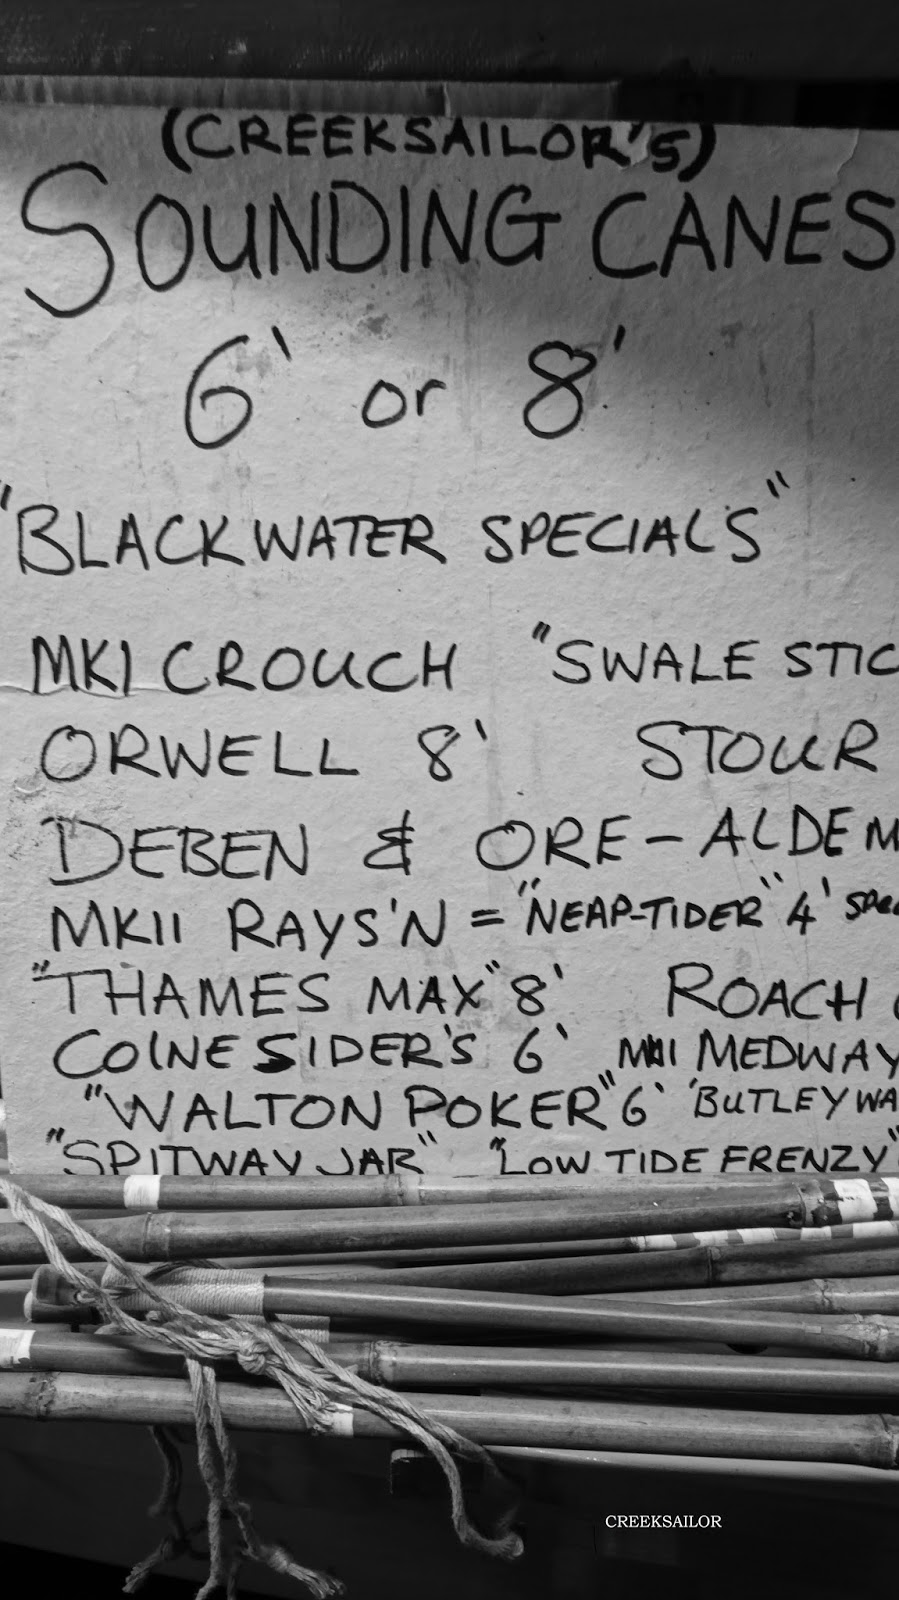 (CREEKSAILOR'S)
SOUNDING CANES
6' or 8'
"BLACKWATER SPECIALS"
MK1 CROUCH "SWALE STIC
ORWELL 8' STOUR
DEBEN & ORE-ALDE
MKII RAYS'N = "NEAP-TIDER" 4'
"THAMES MAX" 8' ROACH
COLNE SIDER'S 6' MEDWAY
"WALTON POKER" 6' 'BUTLEY WA
"SPITWAY JAR" "LOW TIDE FRENZY"
CREEKSAILOR